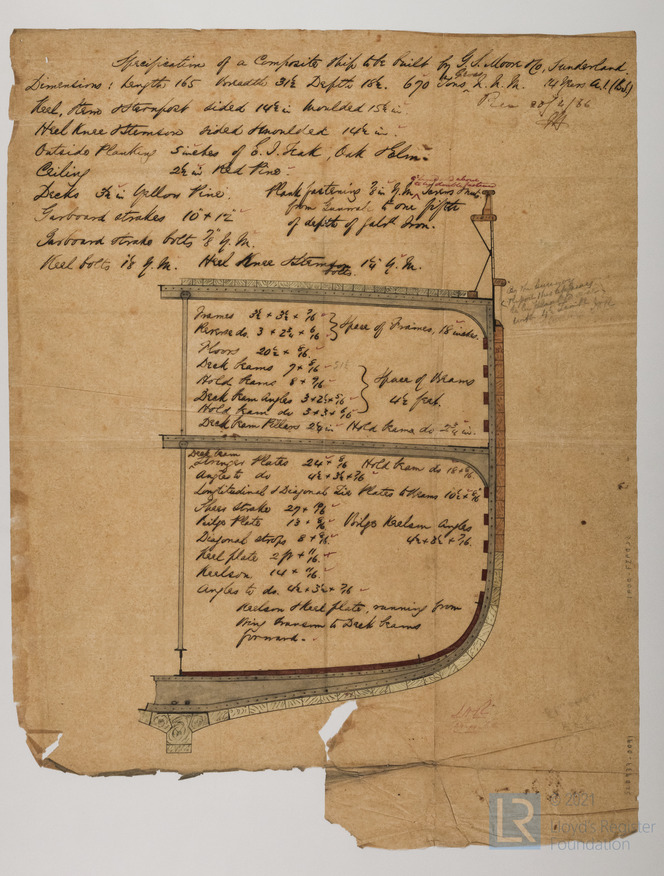 Specification of a Composite Ship to be built by G. S. Moore & Co, Sunderland
Dimensions: Length 165 Breadth 31½ Depth 18½. 670 Tons N. N. M. 14 Years A.1.
Rec 20/2/66
Keel, Stem & Sternpost sided 14½ in moulded 15½ in
Heel Knee & Stemson sided & moulded 14½ in
Outside Planking 5 inches of E. I. Teak, Oak & Elm
Ceiling 2½ in Red Pine
Decks 3½ in Yellow Pine. Plank fastening ⅞ in Y.M. Screws & Nuts
from Gunwale to one fifth
of depth of Galvd Iron.
Garboard strakes 10 + 12
Garboard strake bolts ⅞ Y.M.
Keel bolts 1⅛ Y.M. Heel Knee & Stemson bolts 1¼ Y.M.
Frames 3½ + 3½ + 7/16
Reverse do. 3 + 2½ + 6/16 Space of Frames, 18 inches.
Floors 20½ + 8/16
Deck Beams 7 + 8/16
Hold Beams 8 + 9/16 Space of Beams
Deck Beam Angles 3 + 2½ + 5/16 4½ feet.
Hold Beam do 3 + 3 + 6/16
Deck Beam Pillars 2½ in Hold Beams do 2¾ in.
Deck Beam
Stringer Plates 24 + 8/16 Hold Beam do 18 + 8/16
Angles to do 4½ + 3½ + 7/16
Longitudinal & Diagonal Tie Plates to Beams 10½ + 8/16
Sheer strake 27 + 9/16
Bilge Plate 13 + 8/16 Bilge Keelson Angles
Diagonal straps 8 + 9/16. 4½ + 3½ + 7/16.
Keel plate 24 + 11/16.
Keelson 14 + 11/16.
Angles to do. 4½ + 3½ + 7/16
Keelson & Keel plate, running from
Wing Transom to Deck Beams
forward.
LR
© 2021
Lloyd's Register
Foundation